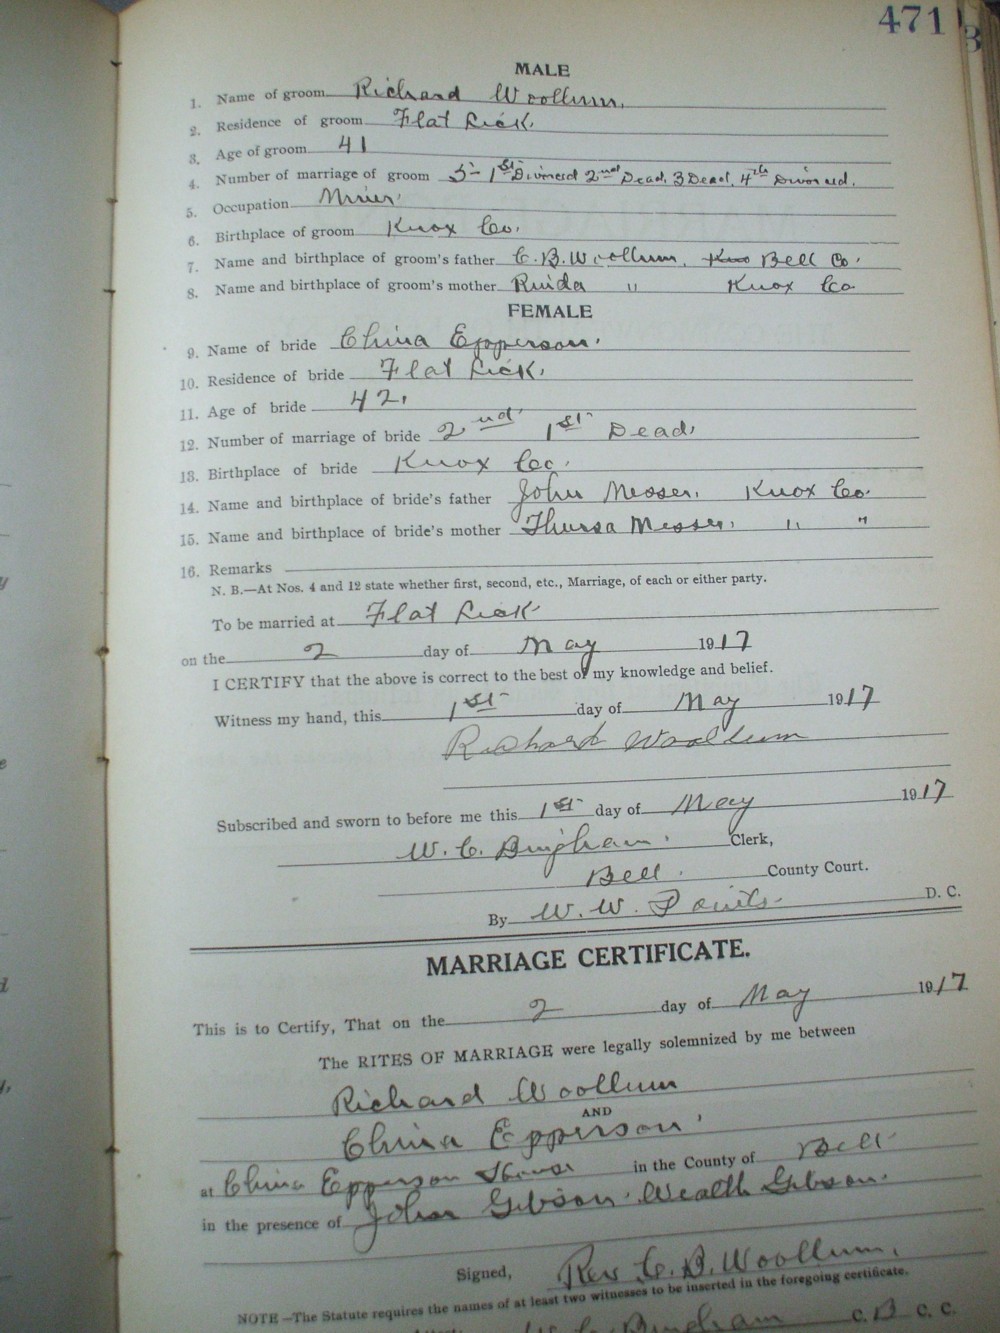 471
3
MALE
1. Name of groom Richard Woollum.
2. Residence of groom Flat Lick.
3. Age of groom 41
4. Number of marriage of groom 5- 1st Divorced 2nd Dead, 3 Dead, 4th Divorced.
5. Occupation Miner
6. Birthplace of groom Knox Co.
7. Name and birthplace of groom's father C. B. Woollum, Bell Co.
8. Name and birthplace of groom's mother " Knox Co
FEMALE
9. Name of bride China Epperson.
10. Residence of bride Flat Lick.
11. Age of bride 42.
12. Number of marriage of bride 2nd 1st Dead.
13. Birthplace of bride Knox Co.
14. Name and birthplace of bride's father John Messer, Knox Co.
15. Name and birthplace of bride's mother Thursa Messer, " "
16. Remarks
N. B.—At Nos. 4 and 12 state whether first, second, etc., Marriage, of each or either party.
To be married at Flat Lick
on the 2 day of May 1917
I CERTIFY that the above is correct to the best of my knowledge and belief.
Witness my hand, this 1st day of May 1917
Richard Woollum
Subscribed and sworn to before me this 1st day of May 1917
W. C. Bingham. Clerk,
Bell. County Court.
By W. W. D. C.
MARRIAGE CERTIFICATE.
This is to Certify, That on the 2 day of May 1917
The RITES OF MARRIAGE were legally solemnized by me between
Richard Woollum
AND
China Epperson
at China Epperson House in the County of Bell
in the presence of John Gibson. Wealth Gibson.
Signed, Rev. C. B. Woollum.
NOTE—The Statute requires the names of at least two witnesses to be inserted in the foregoing certificate.
Bingham C. B. C. C.